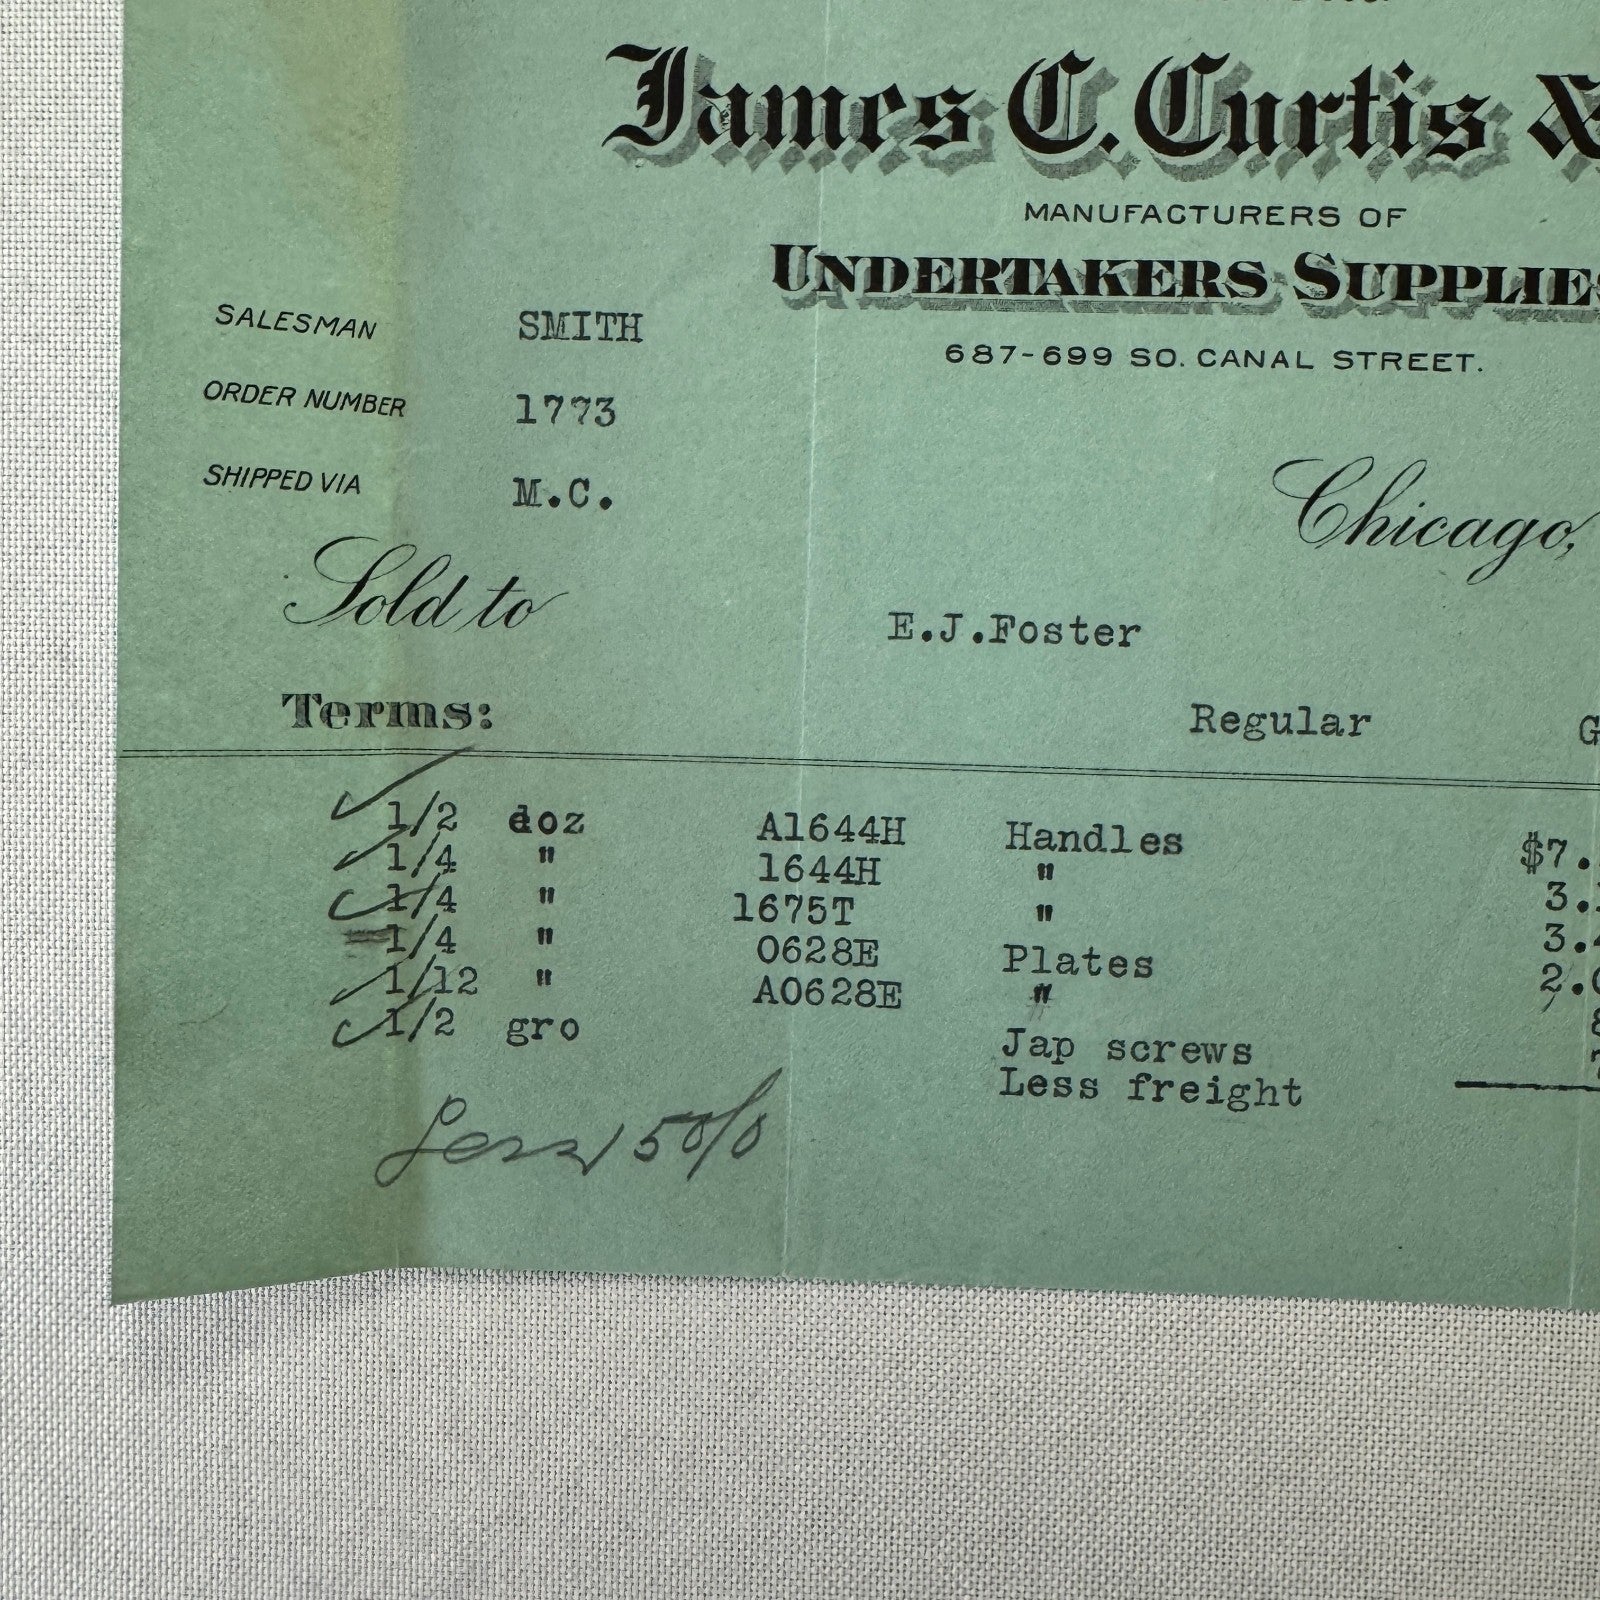 James C. Curtis &
MANUFACTURERS OF
UNDERTAKERS SUPPLIES
687-699 SO. CANAL STREET.
SALESMAN SMITH
ORDER NUMBER 1773
SHIPPED VIA M.C.
Chicago,
Sold to E.J.Foster
Terms: Regular
1/2 doz A1644H Handles $7.
1/4 " 1644H " 3.
1/4 " 1675T " 3.
1/4 " 0628E Plates 2.
1/12 " A0628E "
1/2 gro Jap screws
Less freight
Less 5 0/0